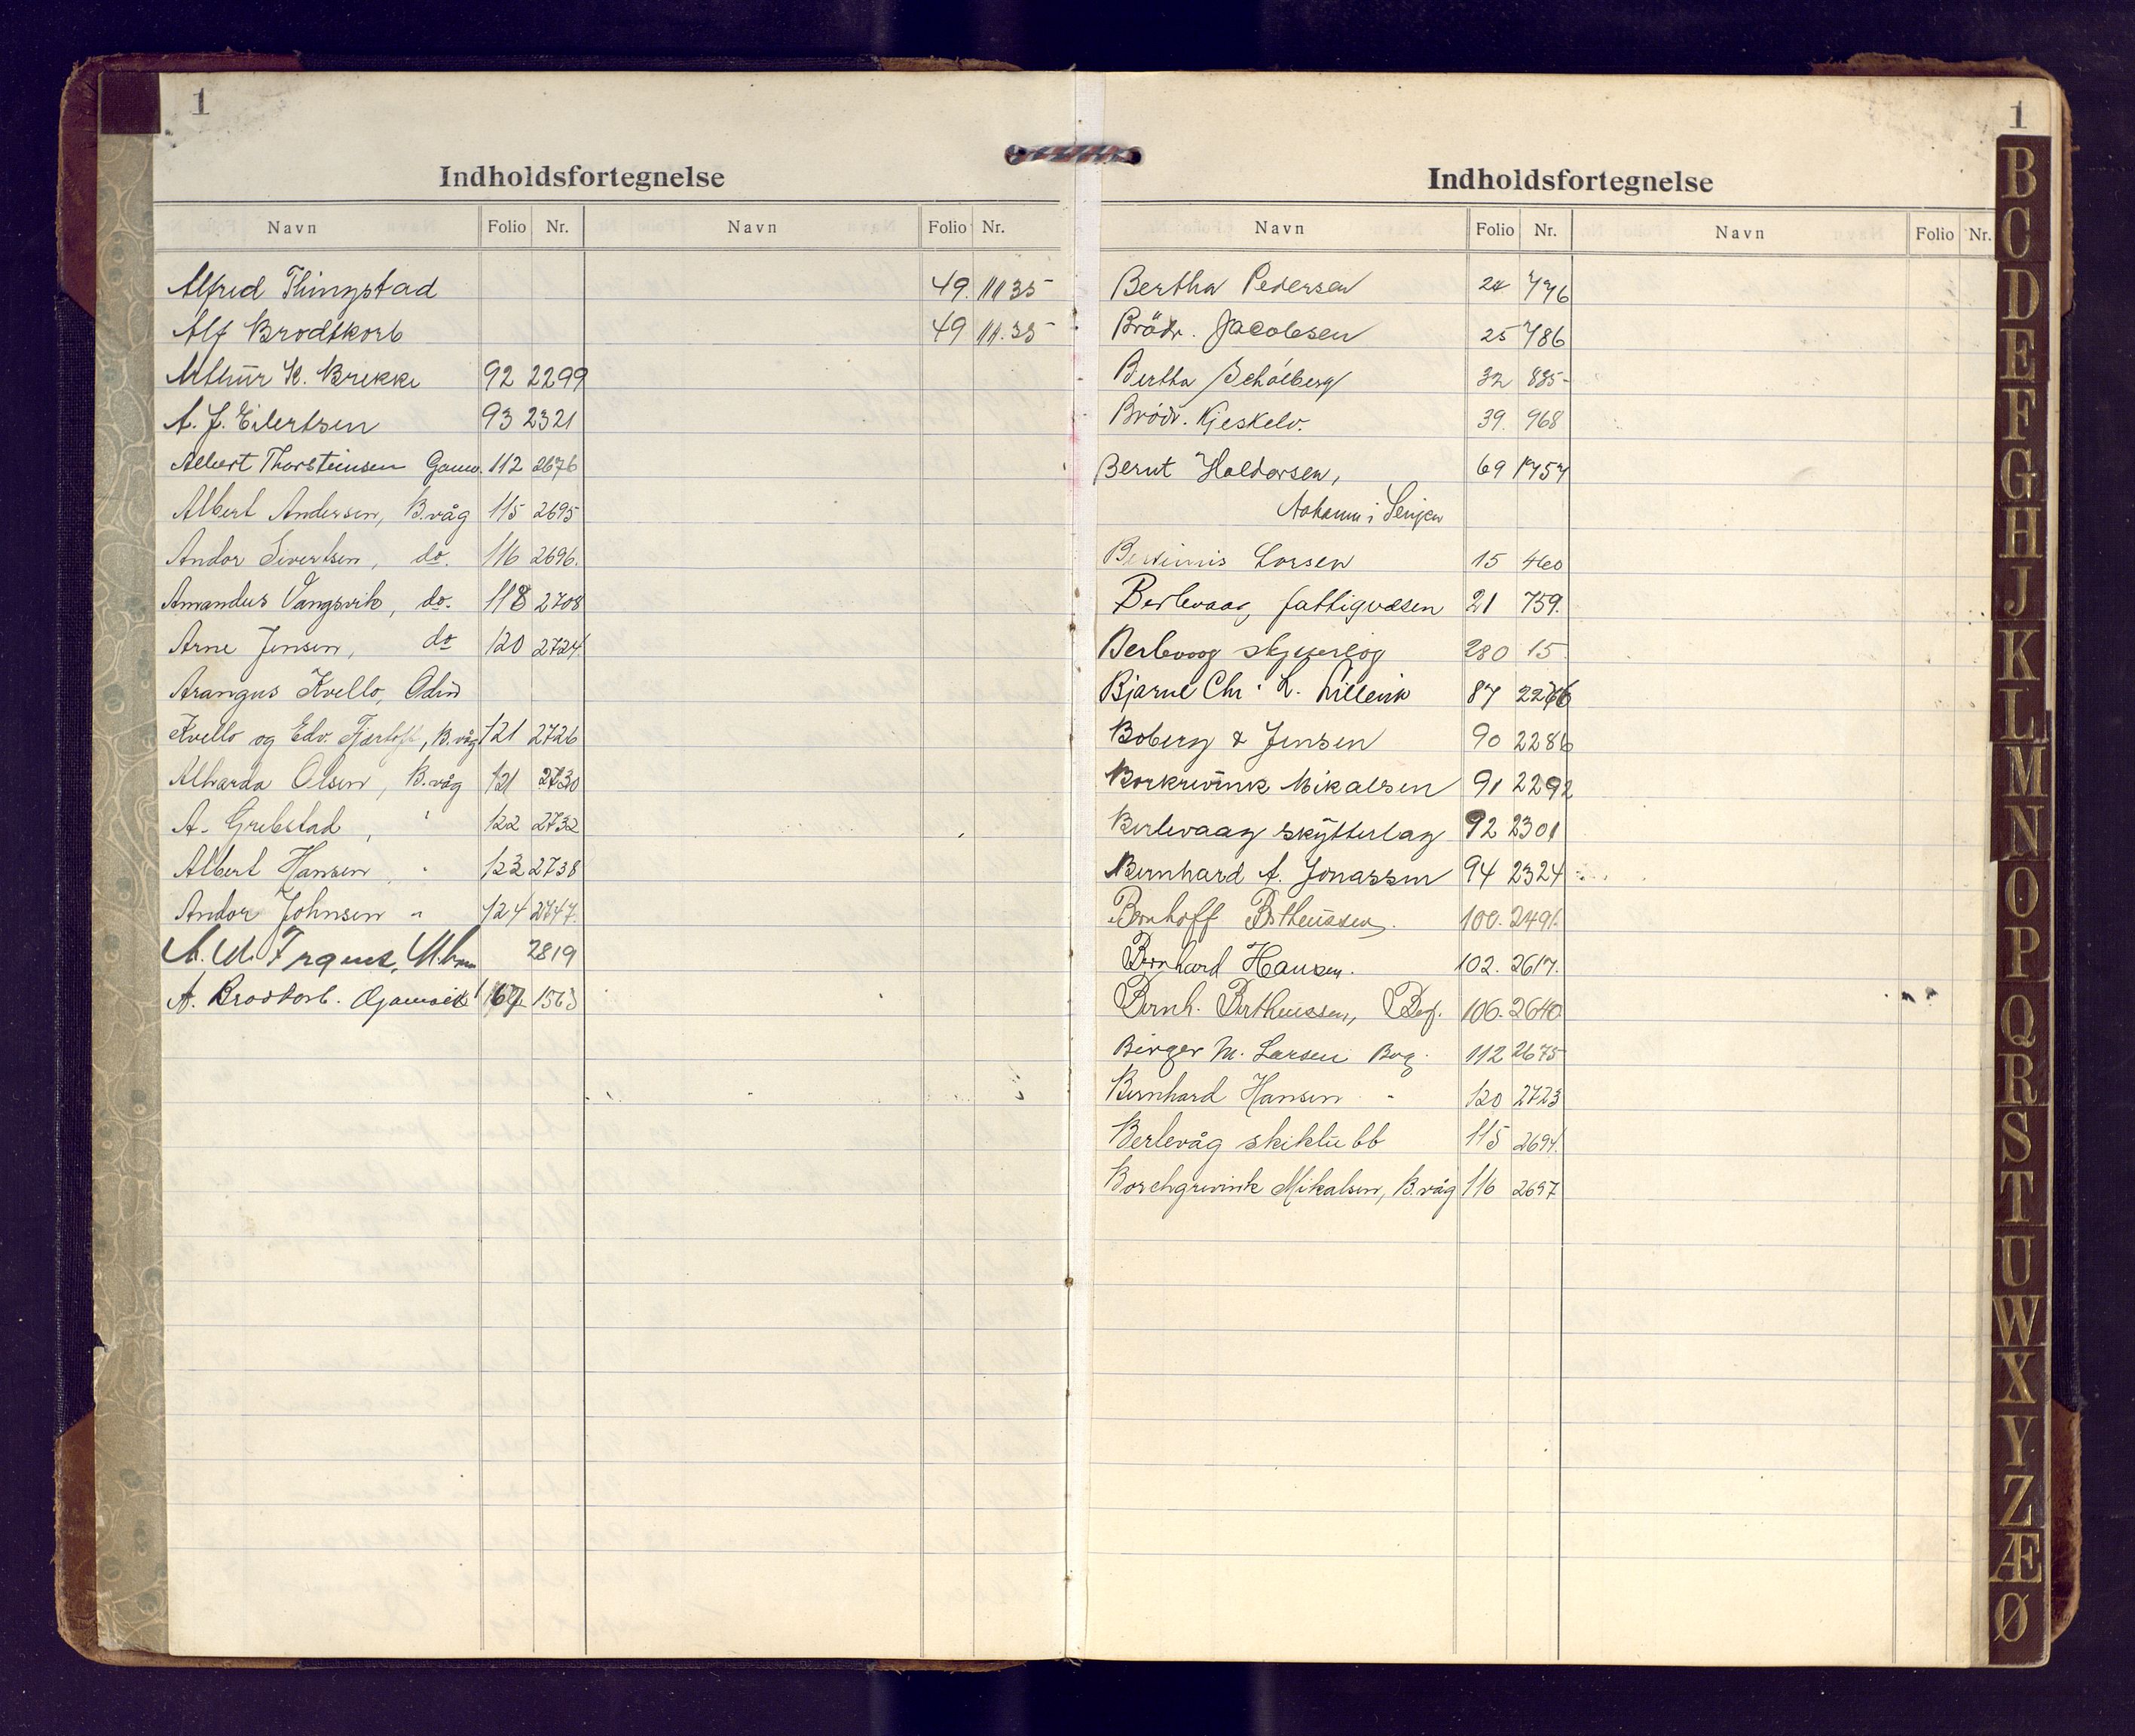 1
Indholdsfortegnelse
Navn Folio Nr. Navn Folio Nr.
Alfred Thingstad 49. 1135
Alf Brodtkorb 49 11.35
Arthur K. Brekke 92 2299
A. J. Eilertsen 93 2321
Albert Thorsteinsen Gamv. 112 2676
Albert Andersen, B.våg 115 2695
Andor Sivertsen, do. 116 2696.
Amandus Vangsvik, do. 118 2708
Arne Jensen, do 120 2724.
Arangus Kvello, Odin
Kvello og Edv. Fjærtoft, B.våg 121 2726
Alvarda Olsen, B.våg 121 2730
A. Grebstad, " 122 2732
Albert Hansen, " 123 2738
Andor Johnsen " 124 2747.
A. M. 2819
A. Brodtkorb. Gamvik 1563
1
Indholdsfortegnelse
Navn Folio Nr. Navn Folio Nr.
Bertha Pedersen 24 776
Brödr. Jacobsen 25 786
Bertha Schölberg 32 835
Brödr. Kjeskelv. 39. 968
Bernt Haldorsen, 69 1757
i Senjen
Larsen 15 460
Berlevaag fattigvæsen 21 759.
Berlevaag 280 15
Bjarne Chr. L. Lillevik 87
Boberg & Jensen 90 2286
Borkrevink Mikalsen 91 2292
Berlevaag skytterlag 92 2301
Bernhard A. Jonassen 94 2324
Bernhoff Bertheussen. 100. 2491.
Bernhard Hansen. 102. 2617.
Bernh. Bertheussen, 106. 2640
Birger M. Larsen Bvg. 112 2675
Bernhard Hansen " 120 2723
Berlevåg skiklubb 115 2694.
Borchgrevink Mikalsen, B.våg 116 2697
B
C
D
E
F
G
H
J
K
L
M
N
O
P
Q
R
S
T
U
W
X
Y
Z
Æ
Ø